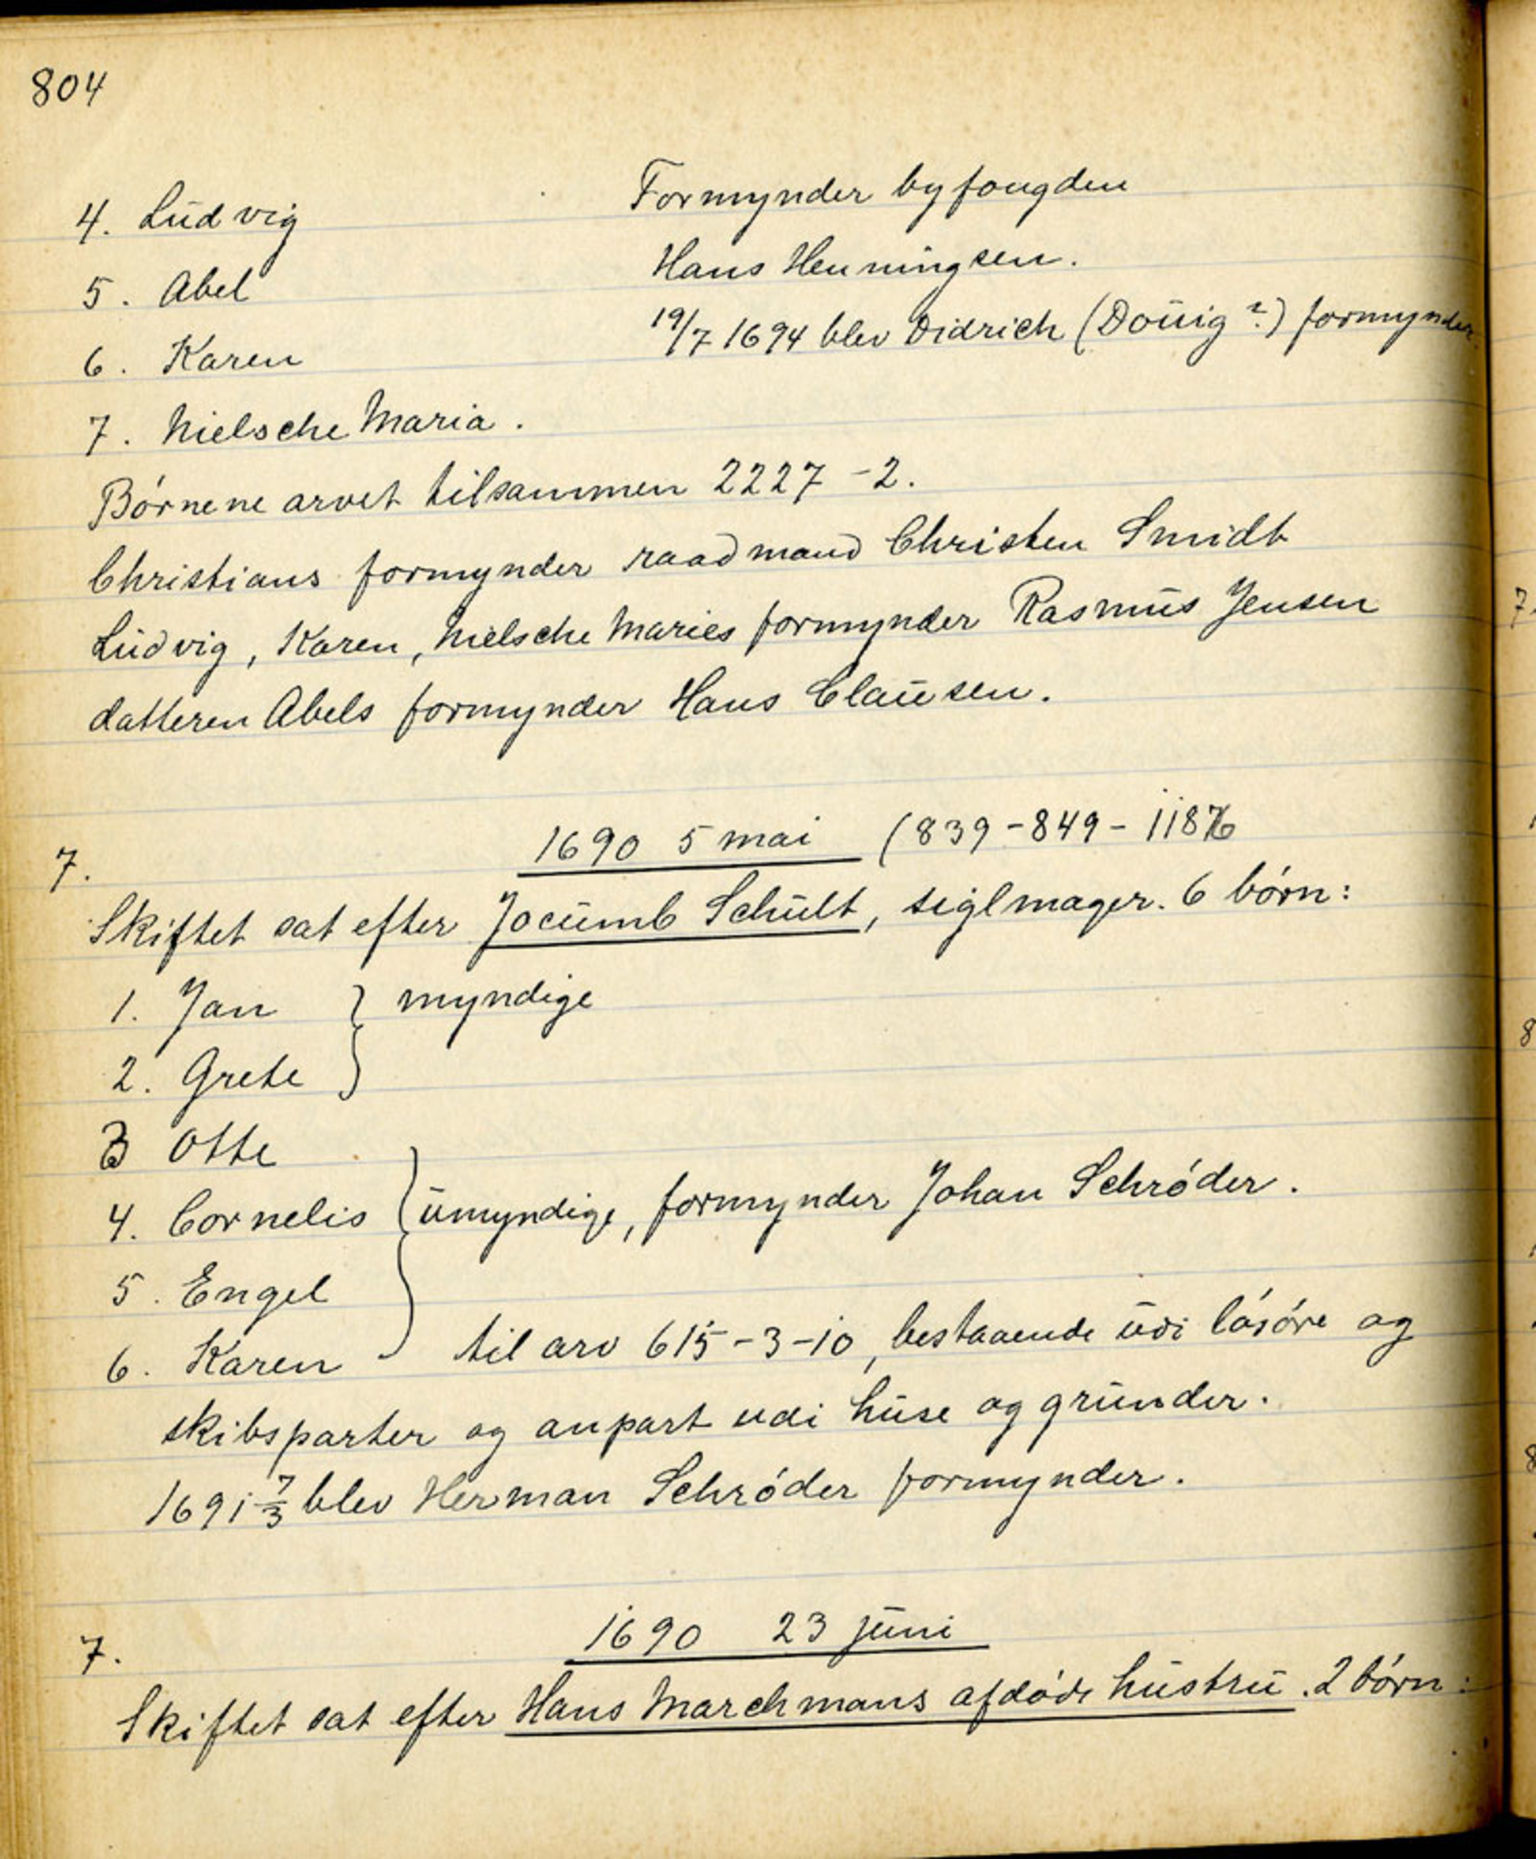 804
4. Ludvig
Formynder byfougden
5. Abel
Hans Henningsen.
6. Karen
19/7 1694 blev Didrich (Douig?) formynder.
7. Nielsche Maria.
Børnene arvet tilsammen 2227 - 2.
Christians formynder raadmand Christen Smidt
Ludvig, Karen, Nielsche Maries formynder Rasmus Jensen
datteren Abels formynder Hans Clausen.
7.
1690 5 mai (839-849-1186
Skiftet sat efter Jocumb Schult, siglmager. 6 børn:
1. Jan } myndige
2. Grete
3 Otte
4. Cornelis } umyndige, formynder Johan Schrøder.
5. Engel
6. Karen til arv 615-3-10, bestaaende udi løsøre og
skibsparter og anpart udi huse og grunder.
1691 7/3 blev Herman Schrøder formynder.
7.
1690 23 juni
Skiftet sat efter Hans Marchmans afdøde hustru. 2 børn: